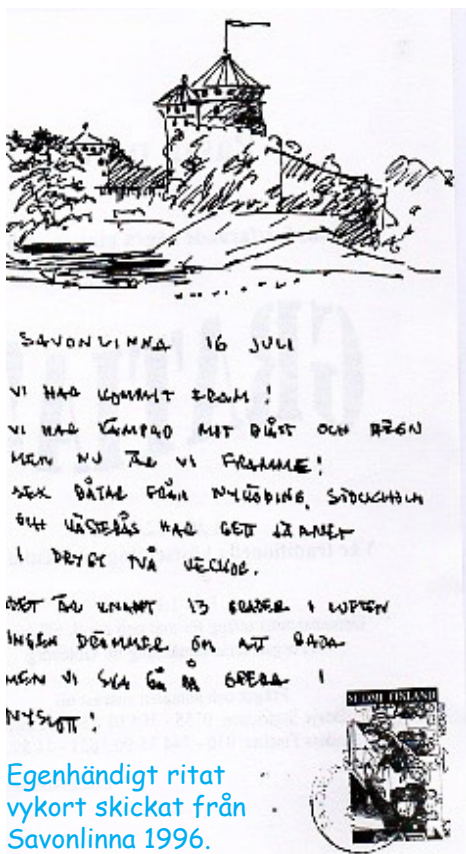 SAVONLINNA 16 JULI
VI HAR KOMMIT FRAM!
VI HAR KÄMPAD MOT BLÅST OCH REGN
MEN NU ÄR VI FRAMME!
SEX BÅTAR FRÅN NYKÖPING, STOCKHOLM
OCH VÄSTERÅS HAR GETT JÄRNET
I DRYGT TVÅ VECKOR.
DET ÄR KNAPT 13 GRADER I LUFTEN
INGEN DRÖMMER OM ATT BADA
MEN VI SKA GÅ PÅ OPERA I
NYSLOTT!
SUOMI FINLAND
Egenhändigt ritat
vykort skickat från
Savonlinna 1996.